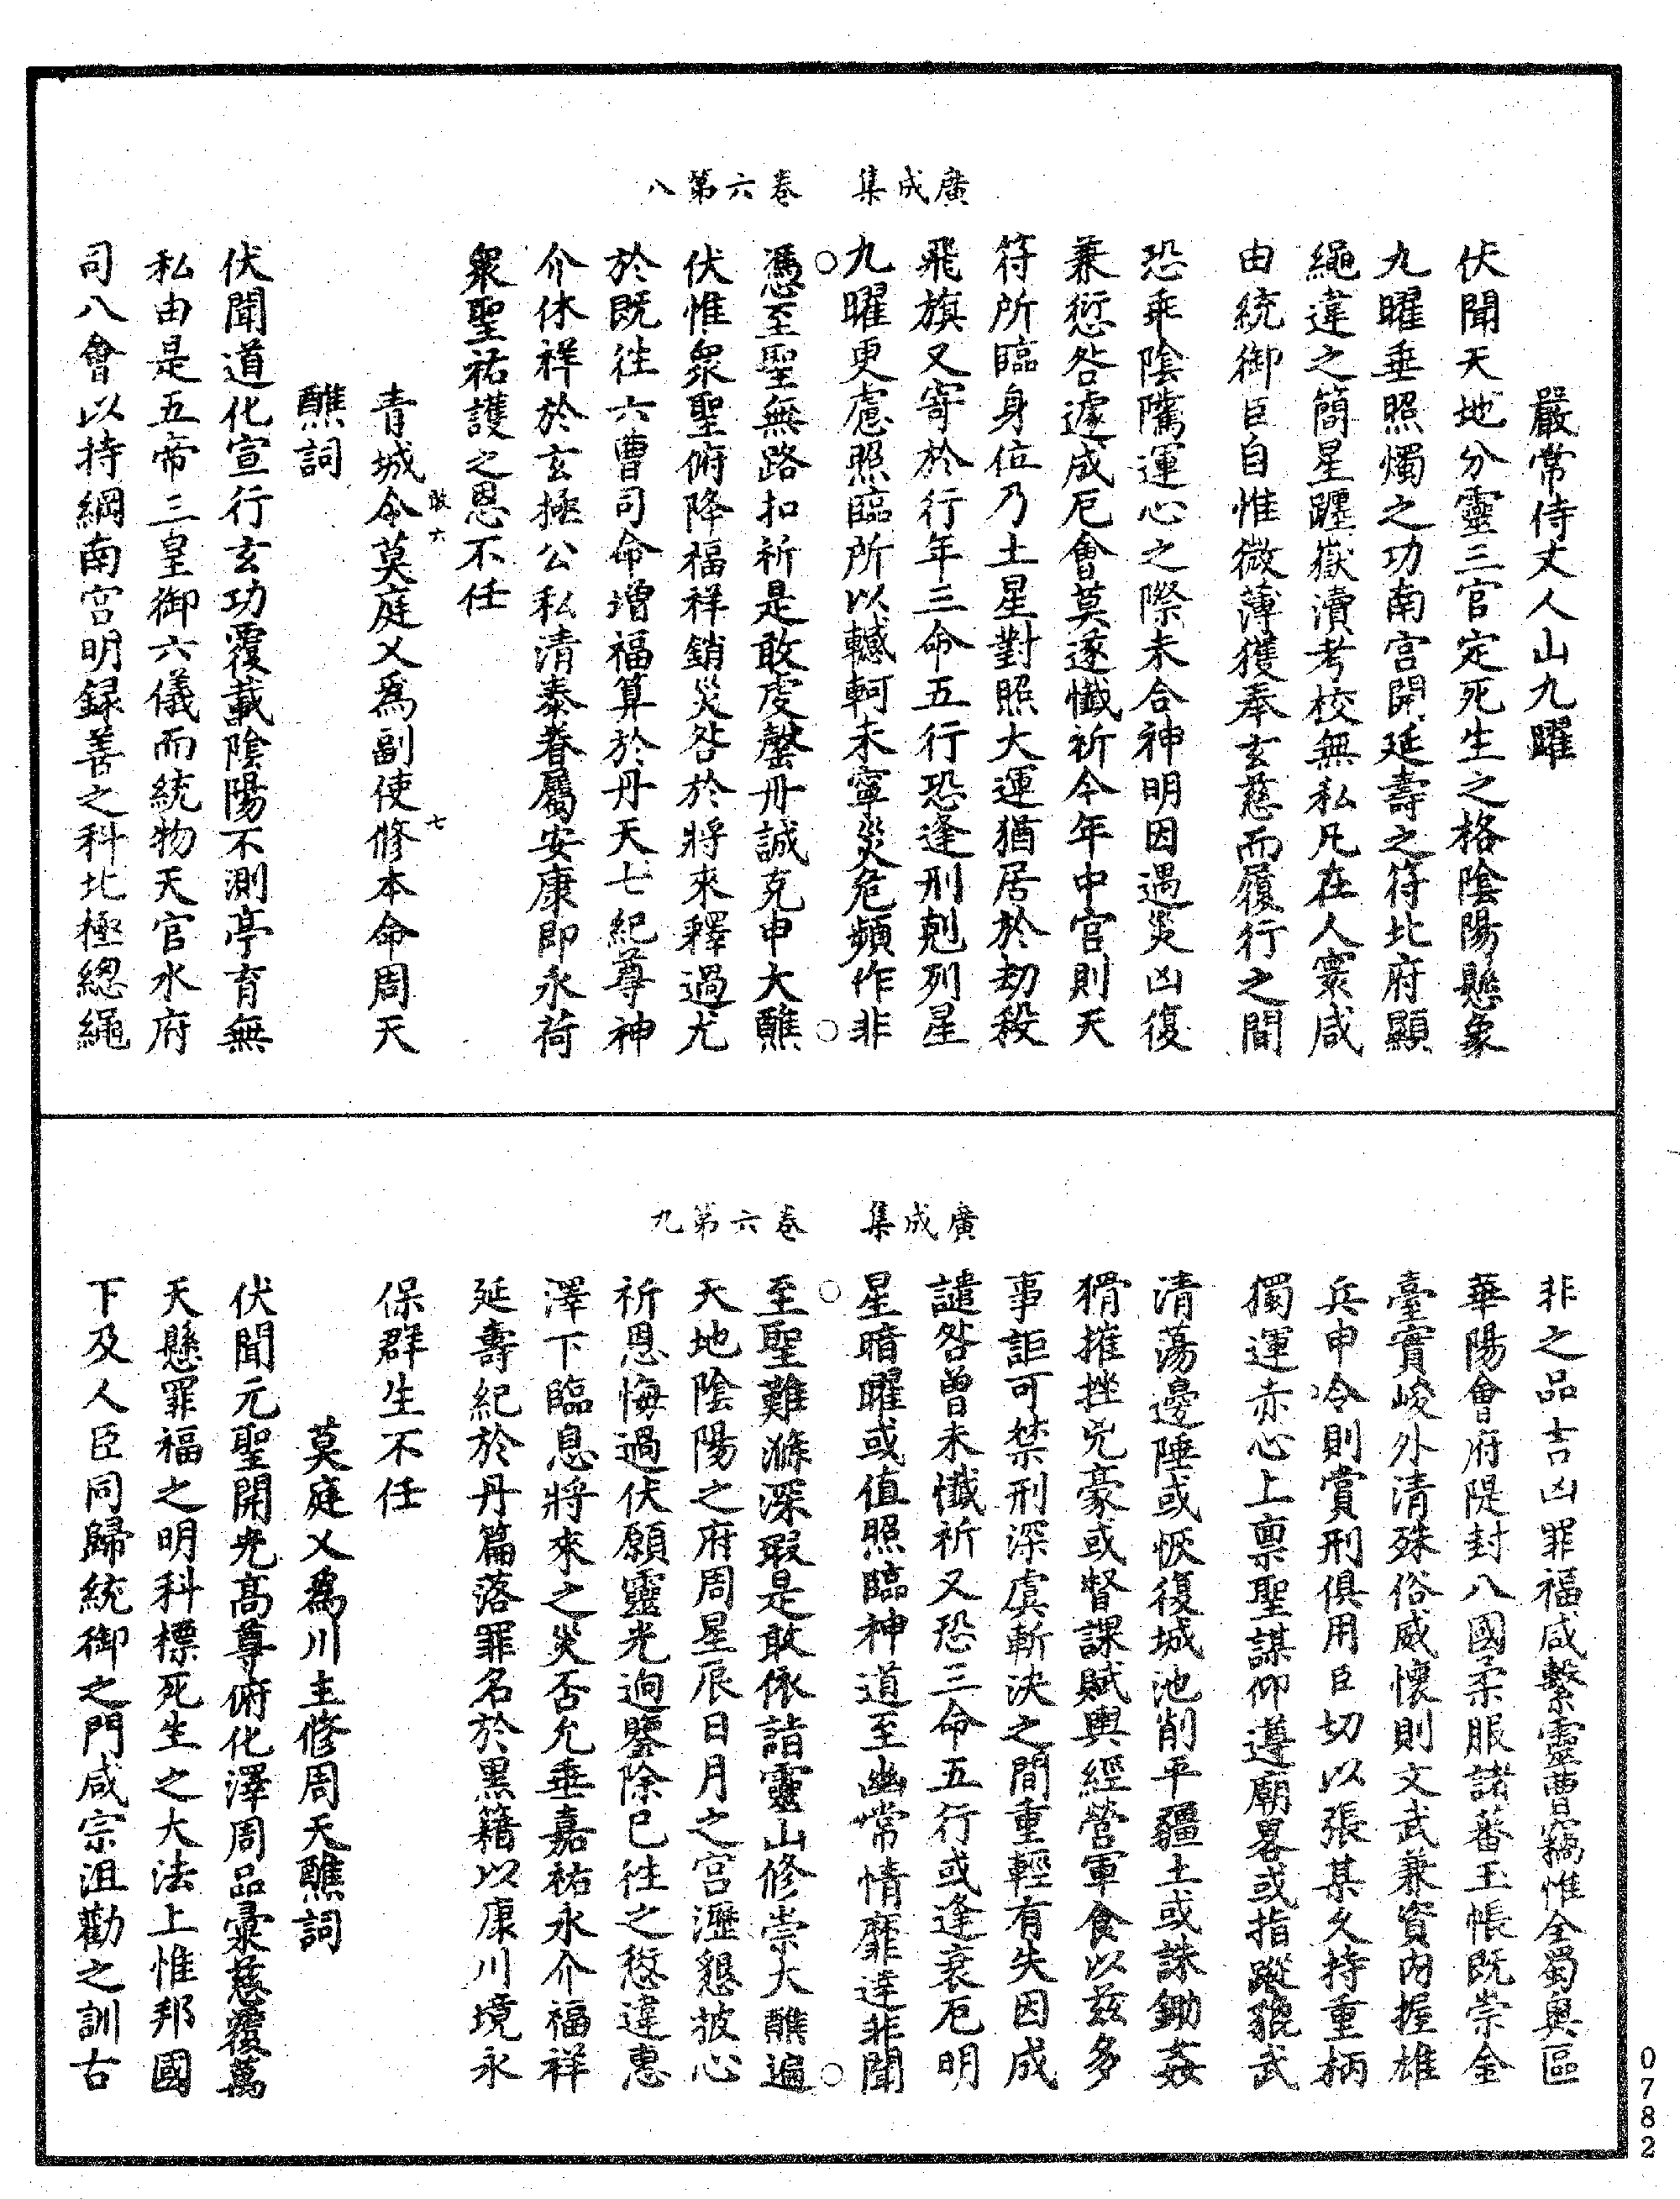 廣成集　卷六第八
嚴常侍丈人山九曜
伏聞天地分靈三官定死生之格陰陽懸象
九曜垂照燭之功南宮開延壽之符北府顯
繩違之簡星躔嶽瀆考校無私凡在人寰咸
由統御臣自惟微薄獲奉玄慈而履行之間
恐乖陰隲運心之際未合神明因遇災凶復
兼愆咎遽成厄會莫遂懺祈今年中宮則天
符所臨身位乃土星對照大運猶居於劫殺
飛旗又寄於行年三命五行恐逢刑剋列星
九曜更慮照臨所以轗軻未寧災危頻作非
憑至聖無路扣祈是敢虔罄丹誠克申大醮
伏惟衆聖俯降福祥銷災咎於將來釋過尤
於既往六曹司命增福算於丹天七紀尊神
介休祥於玄極公私清泰眷屬安康即永荷
衆聖祐護之恩不任
敢六　七
青城令莫庭乂爲副使修本命周天
醮詞
伏聞道化宣行玄功覆載陰陽不測亭育無
私由是五帝三皇御六儀而統物天官水府
司八會以持綱南宮明録善之科北極總繩
廣成集　卷六第九
非之品吉凶罪福咸繫靈曹竊惟全蜀奧區
華陽會府隄封八國柔服諸蕃玉帳既崇金
臺實峻外清殊俗威懷則文武兼資內握雄
兵申令則賞刑俱用臣切以張某久持重柄
獨運赤心上禀聖謀仰遵廟畧或指蹤貔武
清蕩邊陲或恢復城池削平疆土或誅鋤姦
猾摧挫兇豪或督課賦輿經營軍食以兹多
事詎可禁刑深虞斬決之間重輕有失因成
譴咎曾未懺祈又恐三命五行或逢衰厄明
星暗曜或值照臨神道至幽常情靡達非聞
至聖難滌深瑕是敢依詣靈山修崇大醮遍
天地陰陽之府周星辰日月之宮瀝懇披心
祈恩悔過伏願靈光迥鑒除已往之愆違惠
澤下臨息將來之災否允垂嘉祐永介福祥
延壽紀於丹篇落罪名於黑籍以康川境永
保群生不任
莫庭乂爲川主修周天醮詞
伏聞元聖開光高尊俯化澤周品彙慈覆萬
天懸罪福之明科標死生之大法上惟邦國
下及人臣同歸統御之門咸宗沮勸之訓古
0782